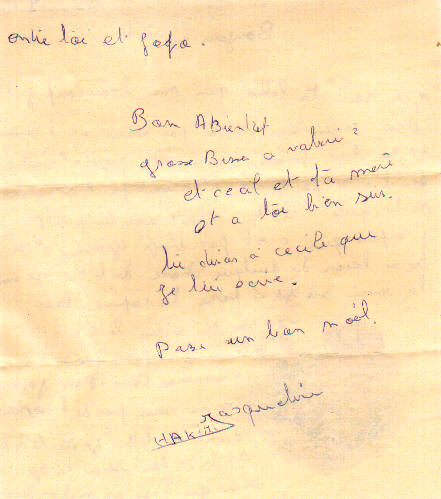 entre toi et fofo.
Bon ABientot
grosse Bises a valeri ?
et cecil et ta mere
et a toi bien sur.
tu diras a cecile que
je lui ecrie.
Passe un bon noël.
HAKIM